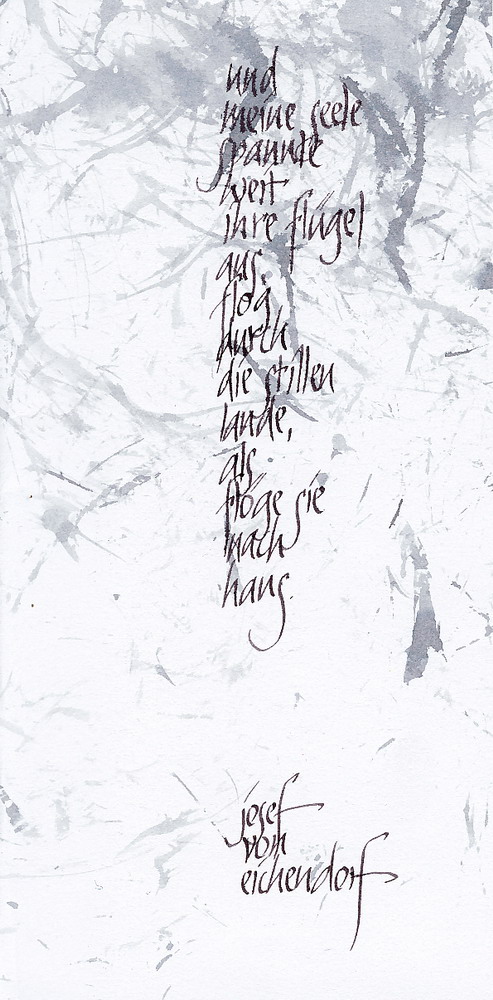 und
meine seele
spannte
weit
ihre flügel
aus,
flog
durch
die stillen
lande,
als
flöge sie
nach
haus.
josef
von
eichendorf